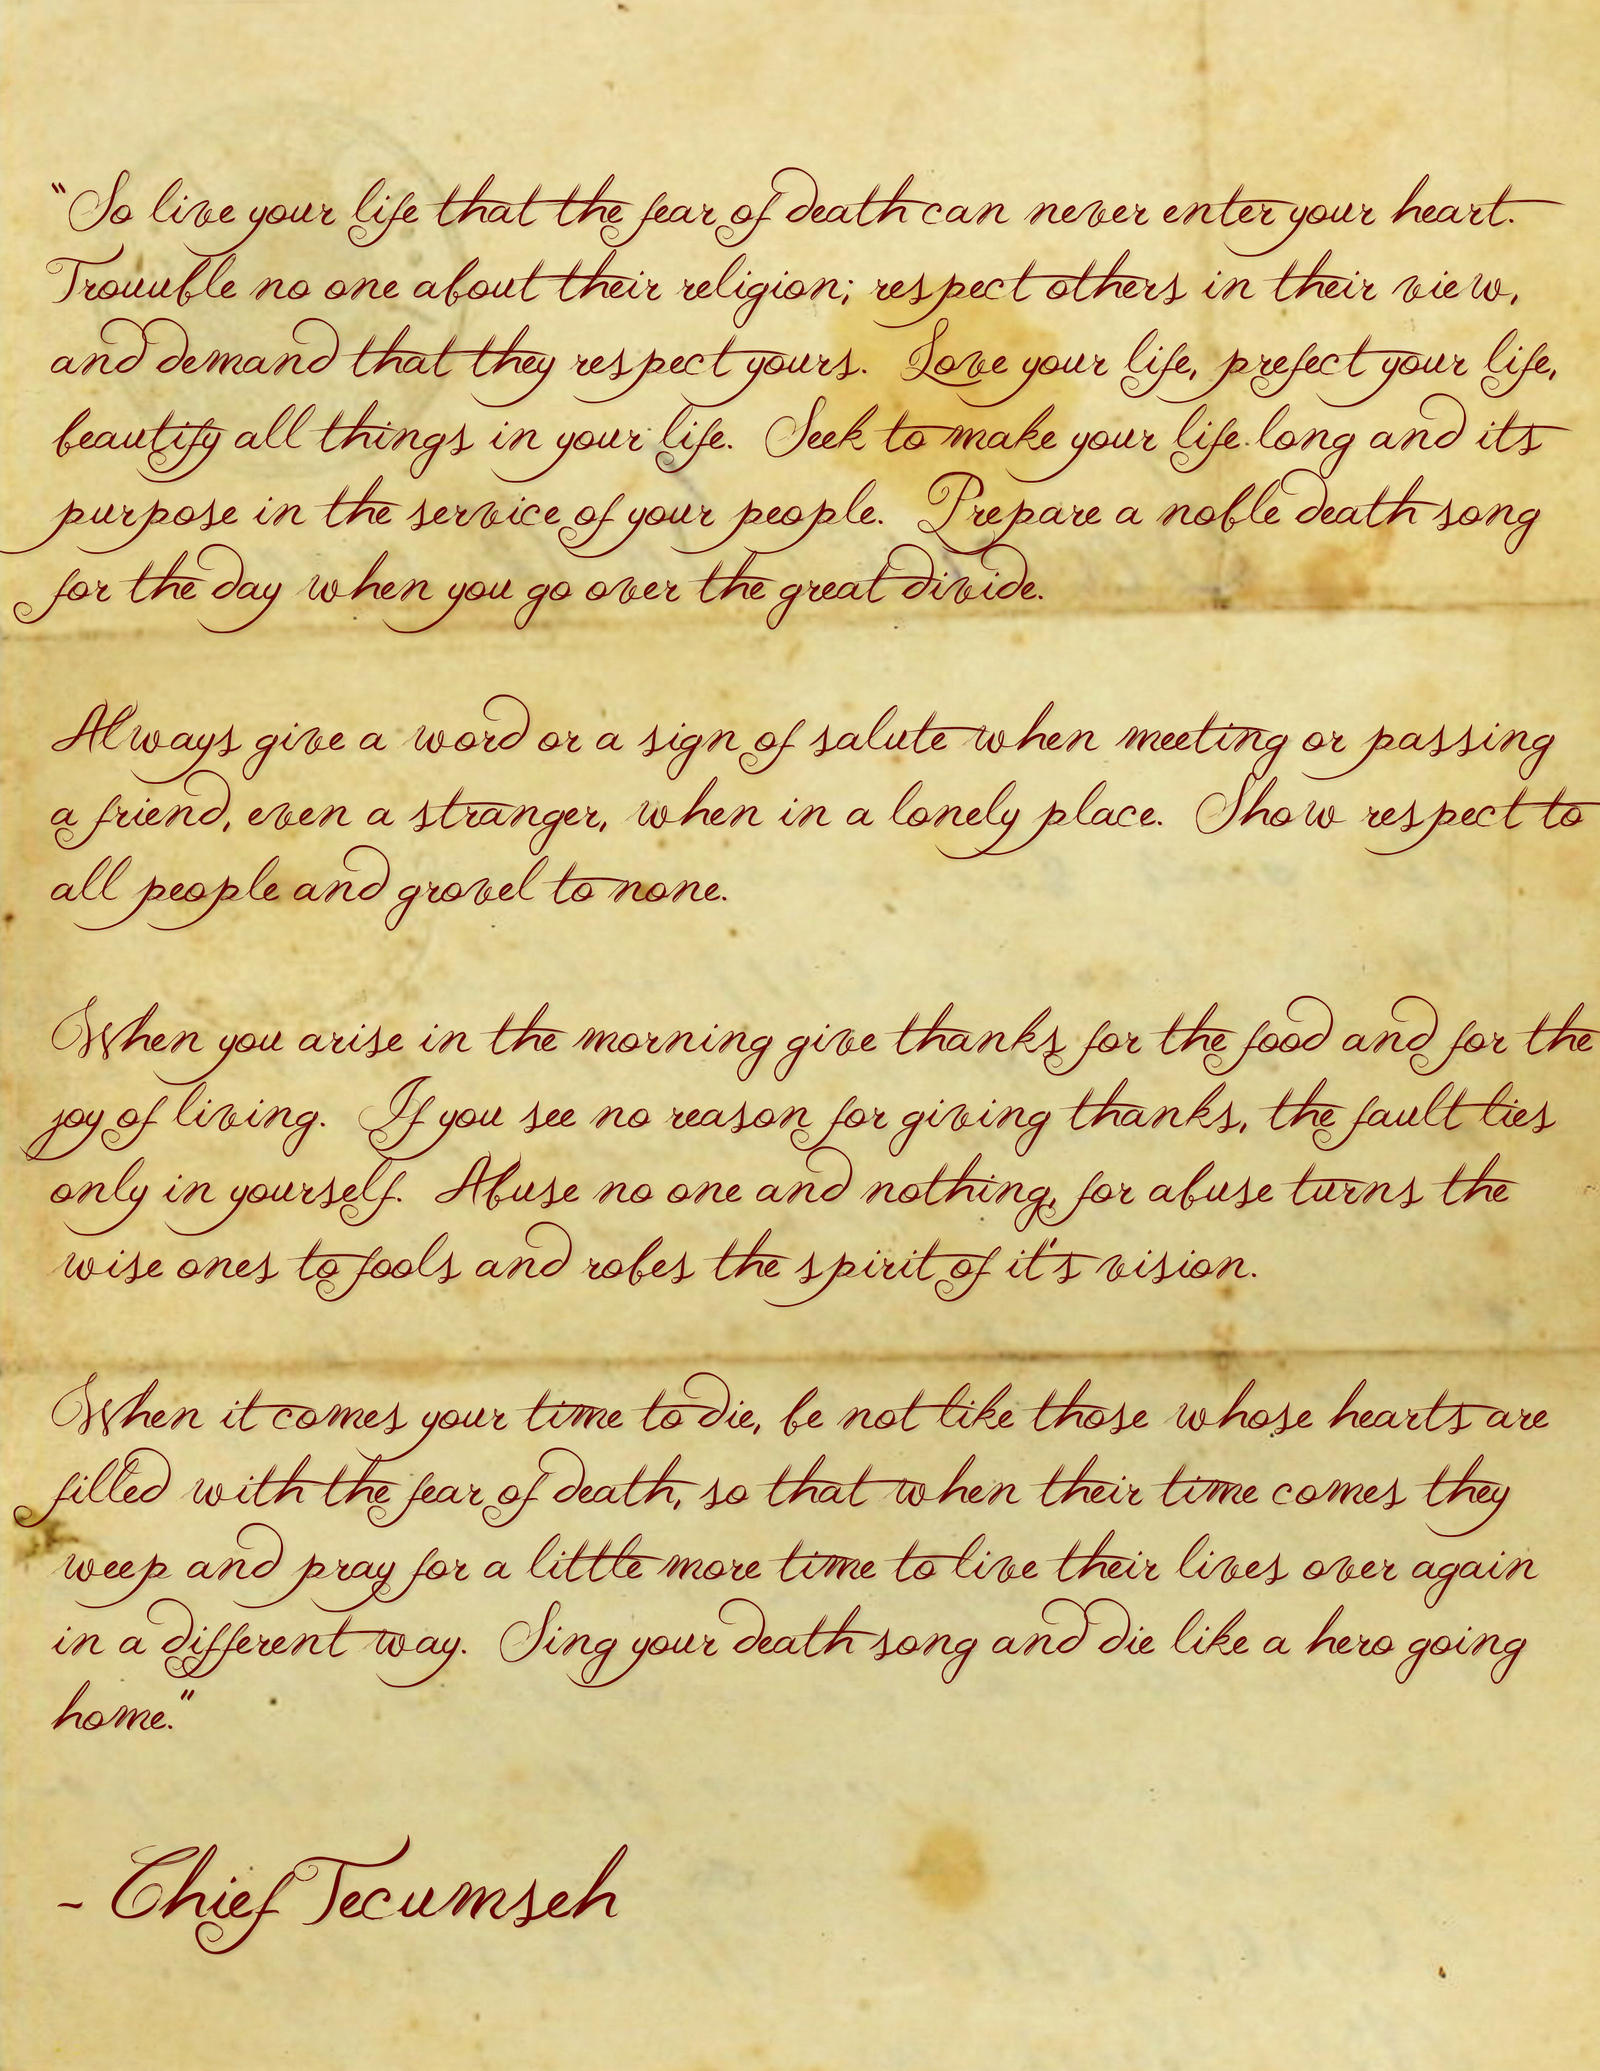 "So live your life that the fear of death can never enter your heart.
Trouuble no one about their religion; respect others in their view,
and demand that they respect yours. Love your life, prefect your life,
beautify all things in your life. Seek to make your life long and its
purpose in the service of your people. Prepare a noble death song
for the day when you go over the great divide.
Always give a word or a sign of salute when meeting or passing
a friend, even a stranger, when in a lonely place. Show respect to
all people and grovel to none.
When you arise in the morning give thanks for the food and for the
joy of living. If you see no reason for giving thanks, the fault lies
only in yourself. Abuse no one and nothing, for abuse turns the
wise ones to fools and robes the spirit of it's vision.
When it comes your time to die, be not like those whose hearts are
filled with the fear of death, so that when their time comes they
weep and pray for a little more time to live their lives over again
in a different way. Sing your death song and die like a hero going
home."
- Chief Tecumseh